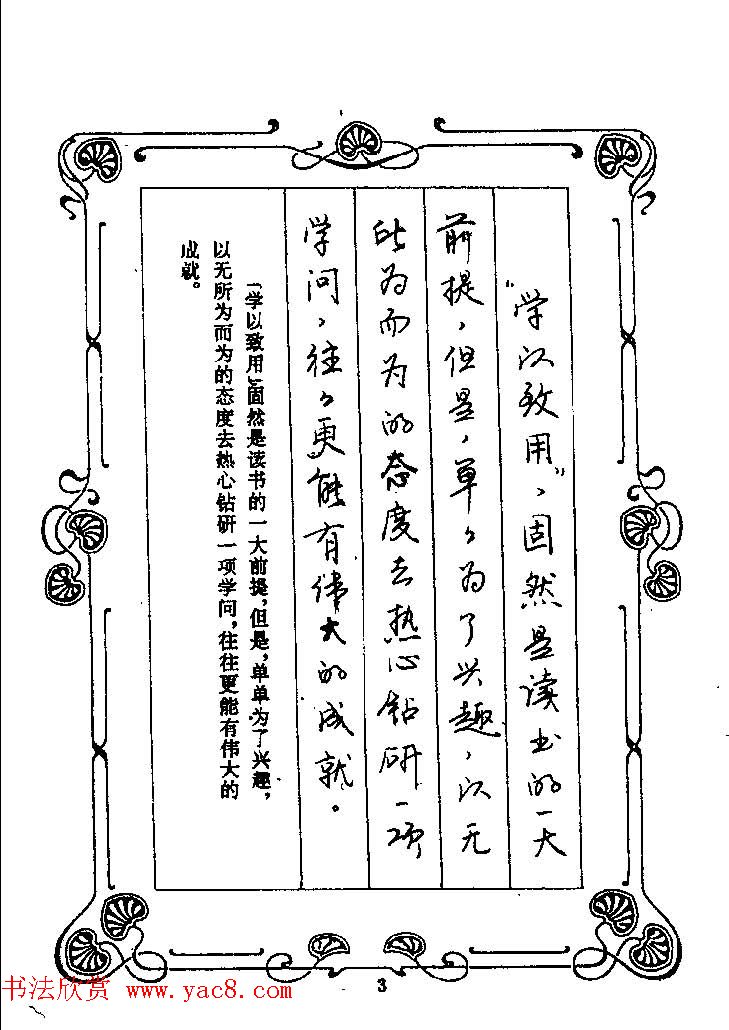 “学以致用”，固然是读书的一大
前提，但是，单々为了兴趣，以无
所为而为的态度去热心钻研一项
学问，往々更能有伟大的成就。
「学以致用」固然是读书的一大前提，但是，单单为了兴趣，
以无所为而为的态度去热心钻研一项学问，往往更能有伟大的
成就。
3
书法欣赏 www.yac8.com